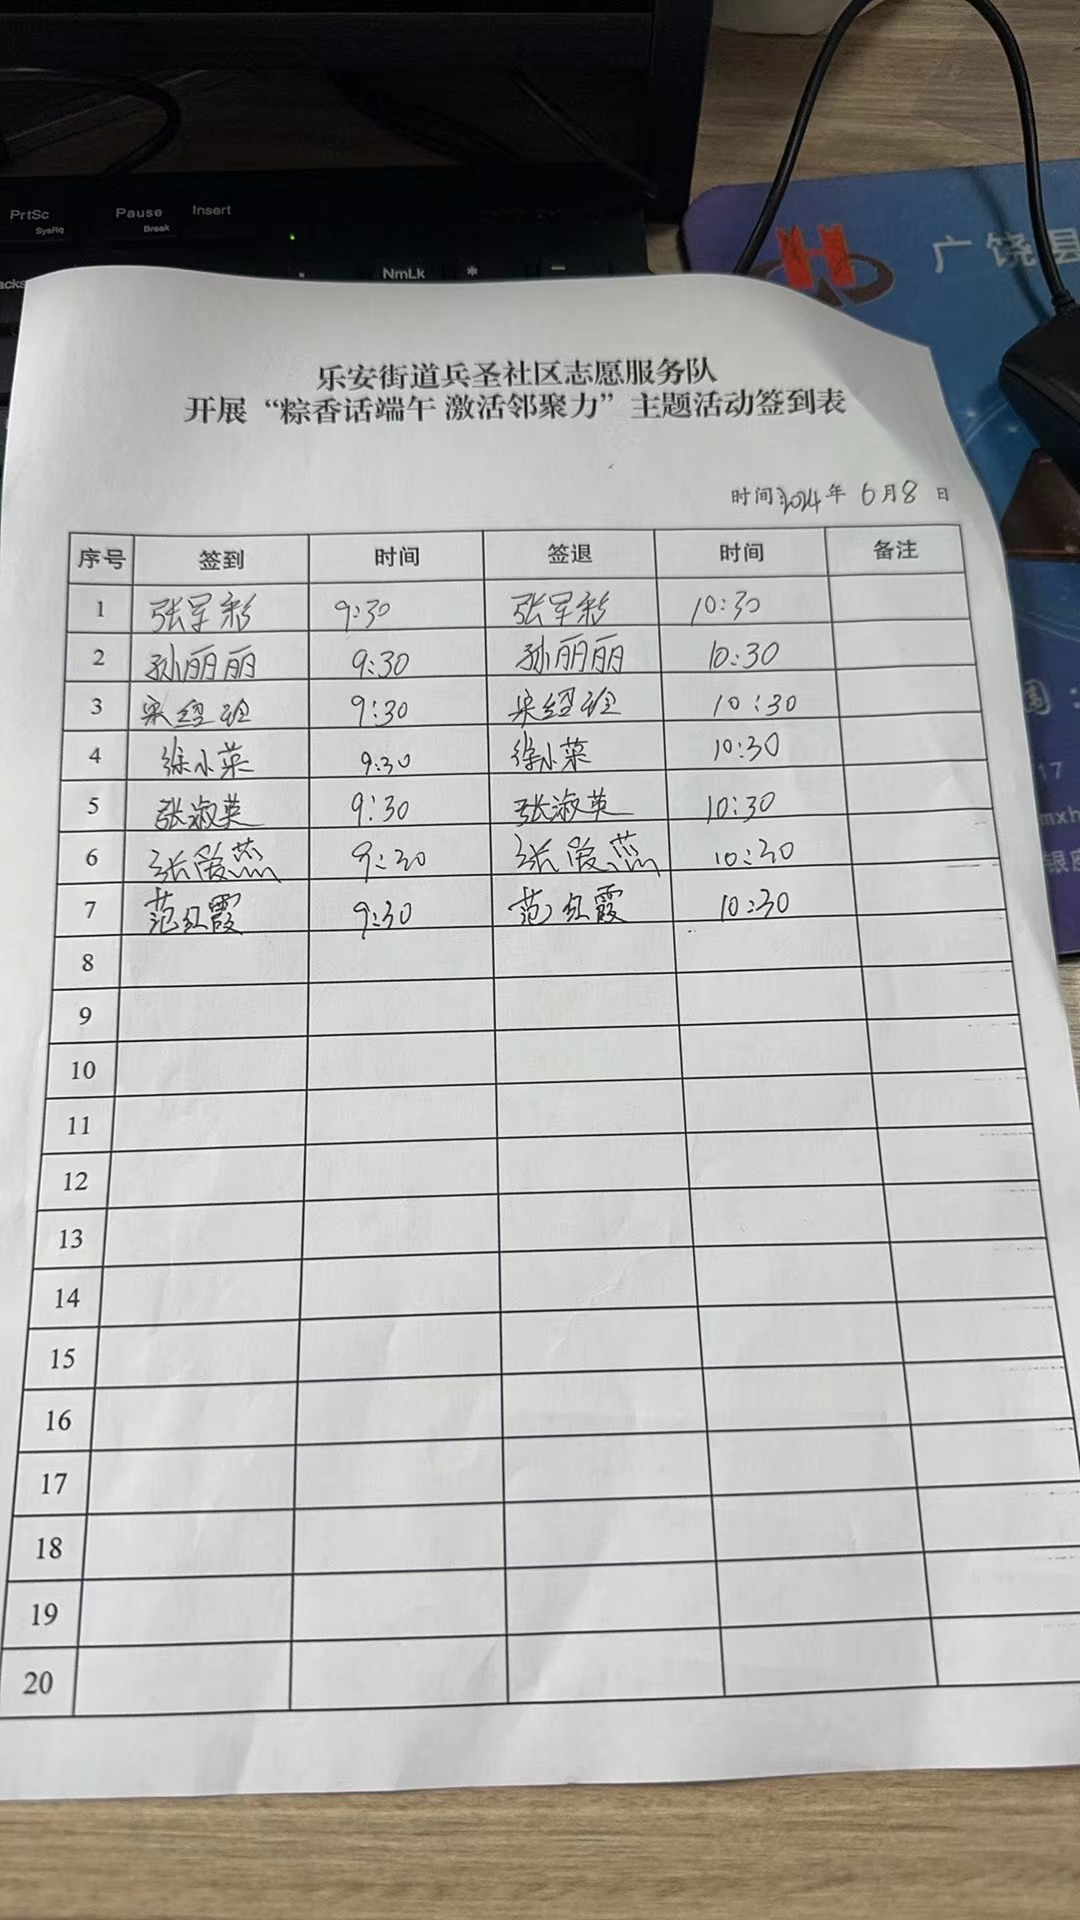 PrtSc
SysRq
Pause
Break
Insert
NmLk
*
广饶县
乐安街道兵圣社区志愿服务队
开展“粽香话端午 激活邻聚力”主题活动签到表
时间:2024年 6月8 日
序号 签到 时间 签退 时间 备注
1 张军彩 9:30 张军彩 10:30
2 孙丽丽 9:30 孙丽丽 10:30
3 9:30 10:30
4 徐小菜 9:30 徐小菜 10:30
5 张淑英 9:30 张淑英 10:30
6 张爱燕 9:30 张爱燕 10:30
7 范红霞 9:30 范红霞 10:30
8
9
10
11
12
13
14
15
16
17
18
19
20